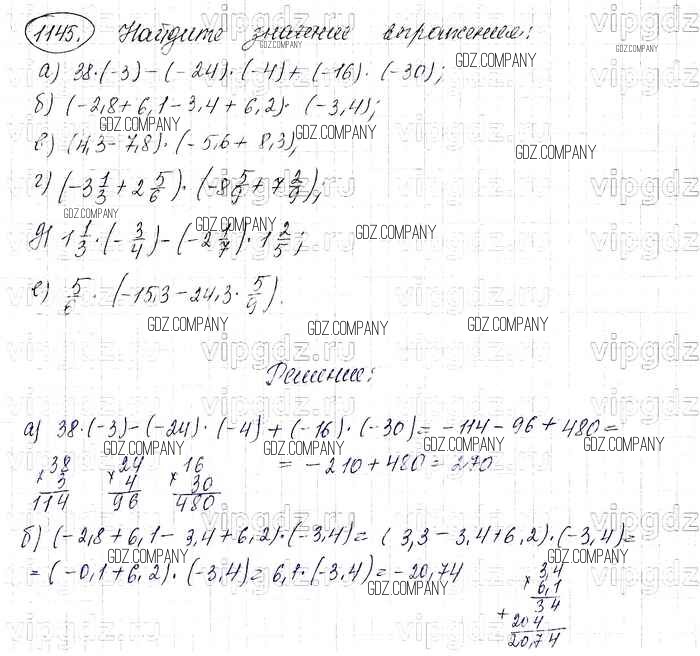 1145. Найдите значение выражения:
а) 38·(-3)-(-24)·(-4)+(-16)·(-30);
б) (-2,8+6,1-3,4+6,2)·(-3,4);
в) (4,3-7,8)·(-5,6+8,3);
г) (-3 1/3 + 2 5/6)·(-8 5/9 + 7 2/9);
д) 1 1/3·(-3/4)-(-2 1/7)·1 2/5;
е) 5/6·(-15,3-24,3·5/9).
Решение:
а) 38·(-3)-(-24)·(-4)+(-16)·(-30)=-114-96+480=
=-210+480=270
38 24 16
× 3 × 4 × 30
114 96 480
б) (-2,8+6,1-3,4+6,2)·(-3,4)=(3,3-3,4+6,2)·(-3,4)=
=(-0,1+6,2)·(-3,4)=6,1·(-3,4)=-20,74
3,4
× 6,1
34
+ 204
20,74
vipgdz.ru
GDZ.COMPANY